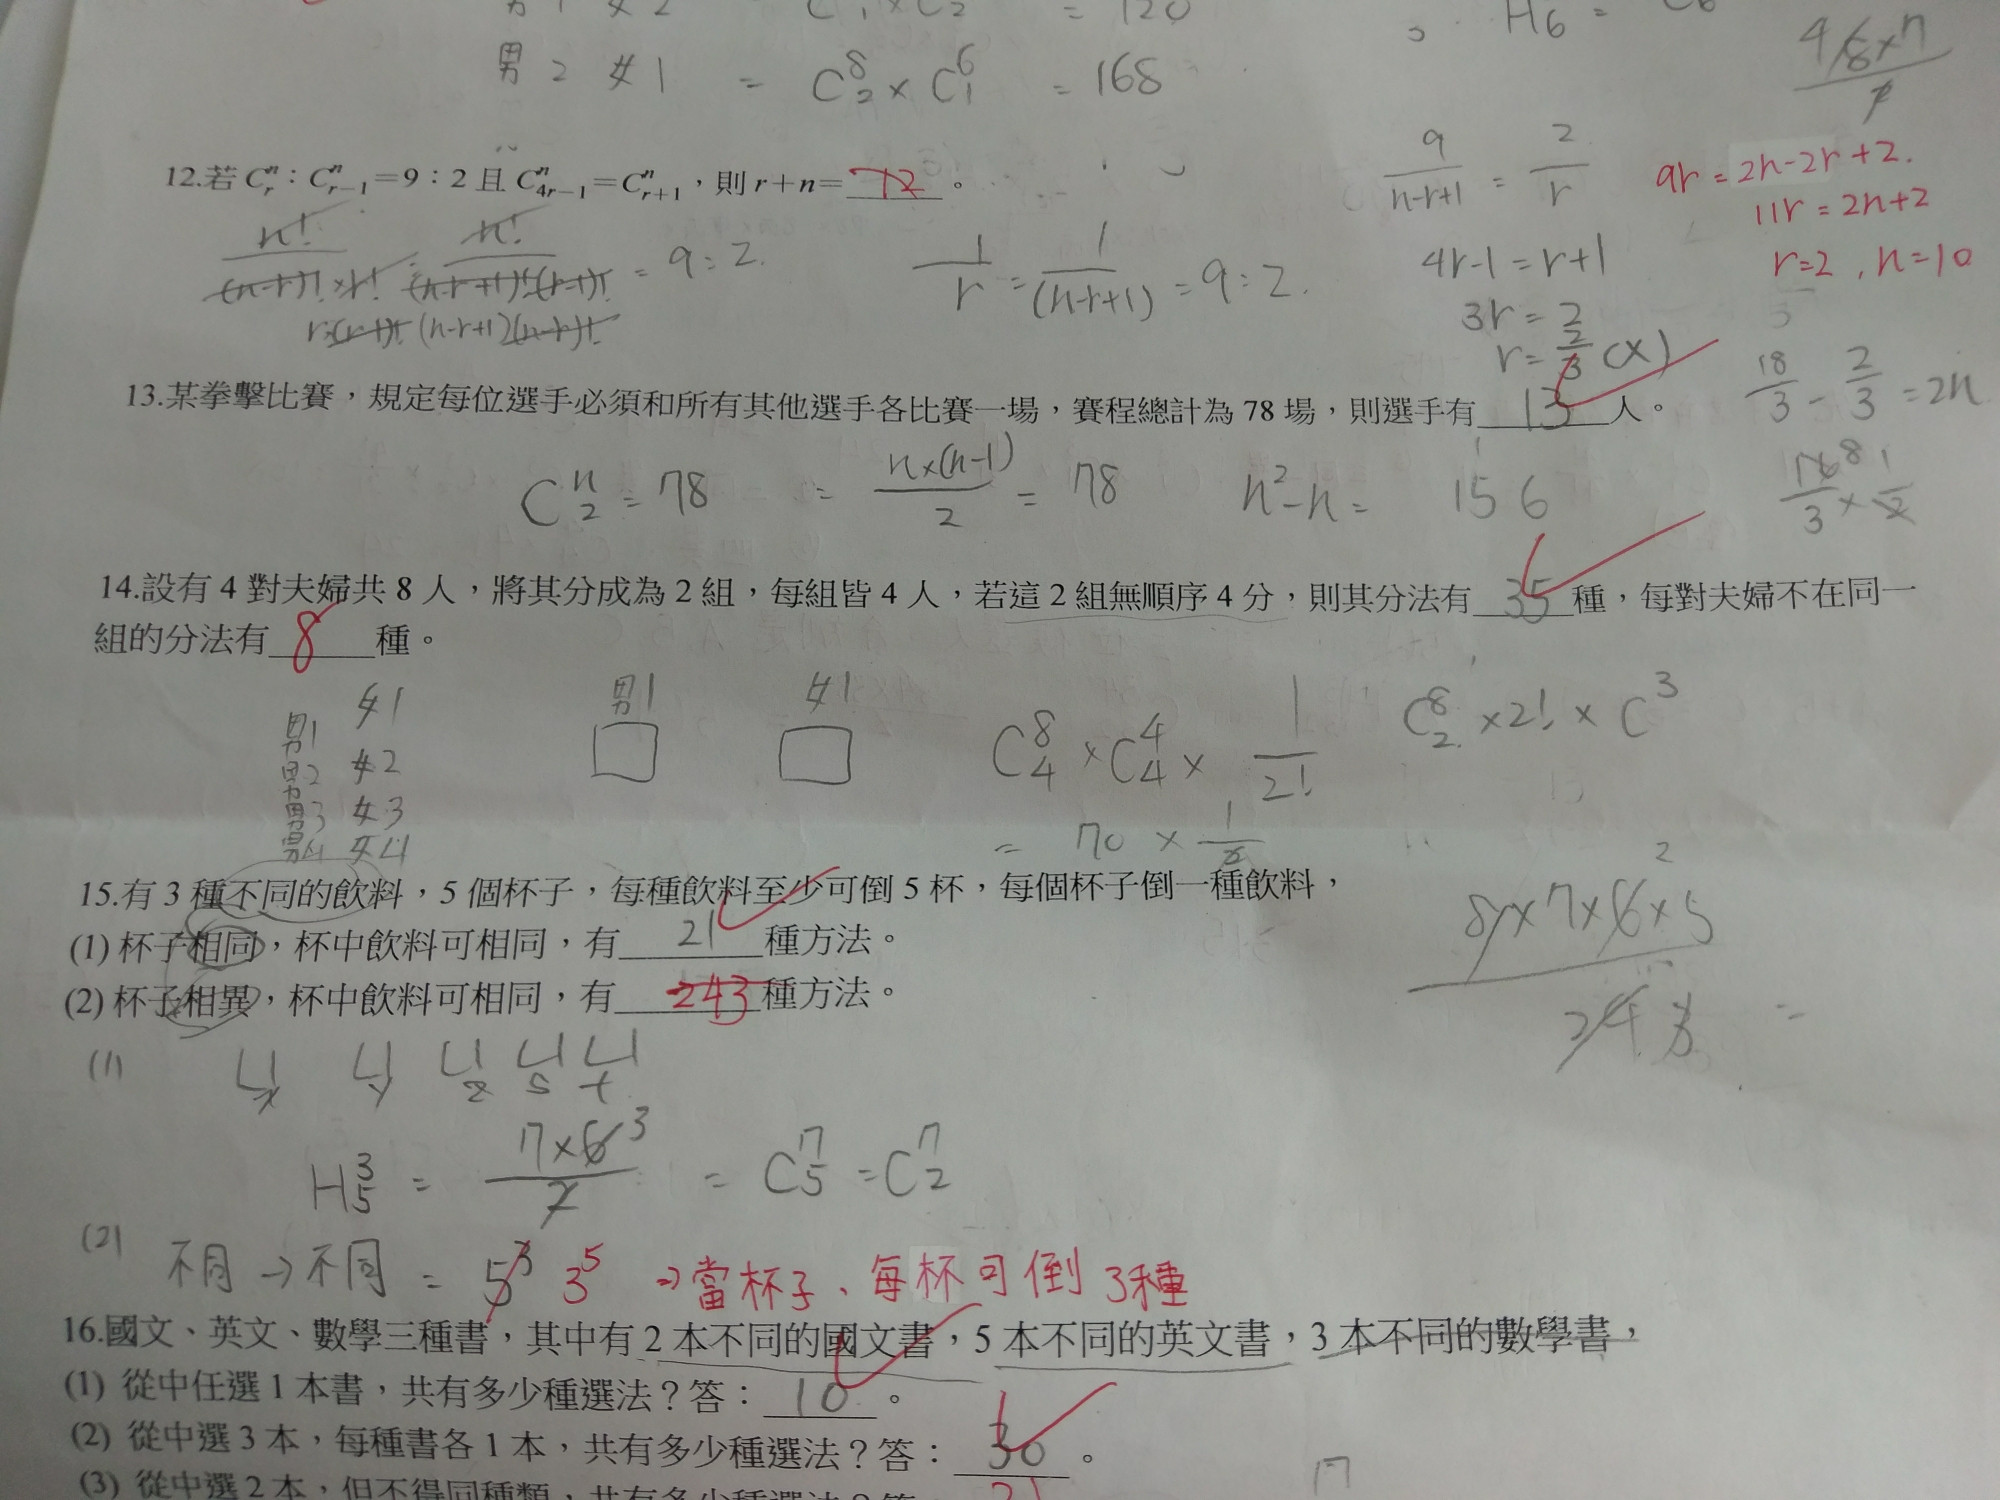 男2 女1 = C⁸₂ × C⁶₁ = 168
12.若 Cⁿᵣ：Cⁿᵣ₋₁=9：2 且 Cⁿ₄ᵣ₋₁=Cⁿᵣ₊₁，則 r＋n= 12 。
9/(n-r+1) = 2/r
9r = 2n-2r+2.
11r = 2n+2
r=2 , n=10
= 9:2.
1/r = 1/(n-r+1) = 9:2.
4r-1 = r+1
3r = 2
r = 2/3 (×)
18/3 - 2/3 = 2n
13.某拳擊比賽，規定每位選手必須和所有其他選手各比賽一場，賽程總計為 78 場，則選手有 13 人。
Cⁿ₂ = 78 = n×(n-1)/2 = 78 n²-n = 156
14.設有 4 對夫婦共 8 人，將其分成為 2 組，每組皆 4 人，若這 2 組無順序 4 分，則其分法有 35 種，每對夫婦不在同一
組的分法有 8 種。
男1 女1
男2 女2
男3 女3
男4 女4
男1 女1
C⁸₄ × C⁴₄ × 1/2!
= 70 × 1/2
C⁸₂ × 2! × C³
15.有 3 種不同的飲料，5 個杯子，每種飲料至少可倒 5 杯，每個杯子倒一種飲料，
(1) 杯子相同，杯中飲料可相同，有 21 種方法。
(2) 杯子相異，杯中飲料可相同，有 243 種方法。
8×7×6×5
(1)
x y z s t
H³₅ = 7×6/2 = C⁷₅ = C⁷₂
(2) 不同→不同 = 5³ 3⁵ ⇒當杯子、每杯可倒 3種
16.國文、英文、數學三種書，其中有 2 本不同的國文書，5 本不同的英文書，3 本不同的數學書，
(1) 從中任選 1 本書，共有多少種選法？答： 10 。
(2) 從中選 3 本，每種書各 1 本，共有多少種選法？答： 30 。
(3) 從中選 2 本，但不得同種類，共有多少種選法？答